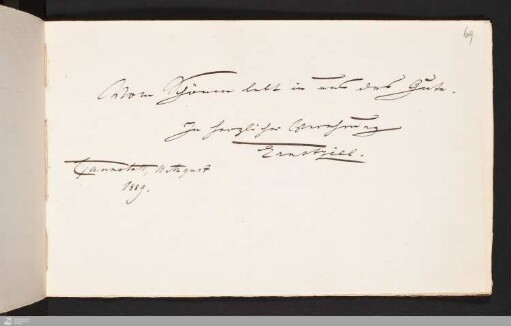 69
Vom Schönen lebt in uns das Gute.
In herzlicher Verehrung
Ernst Ziel.
Cannstatt, 11 August
1889.